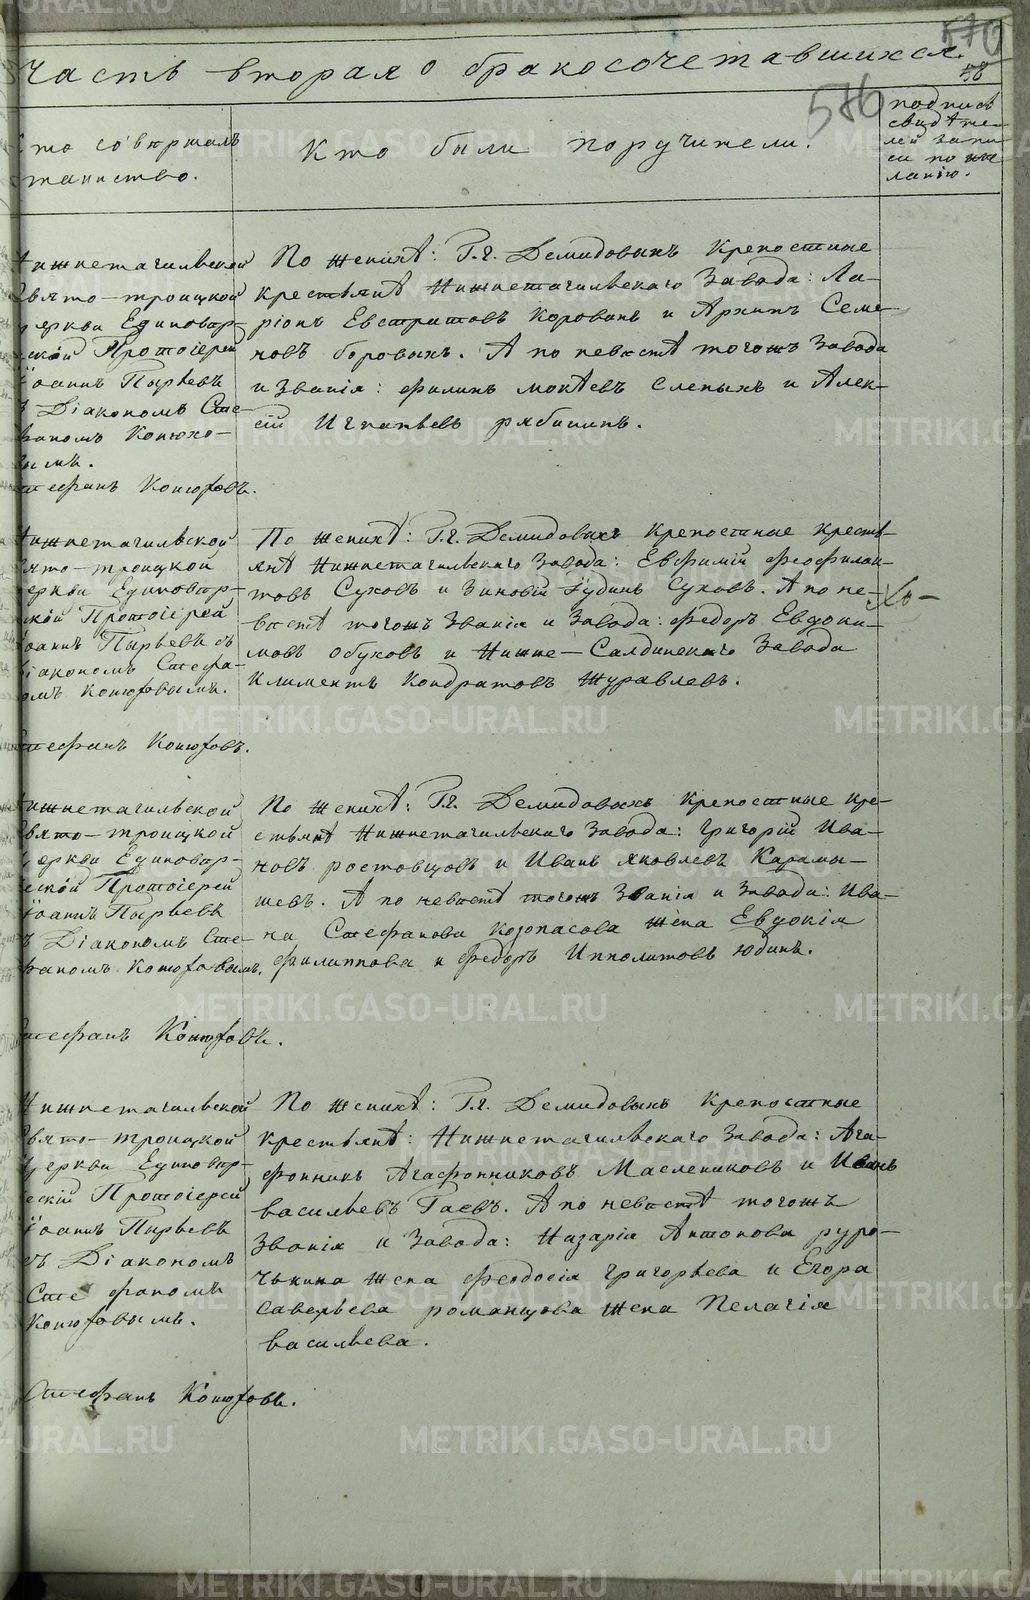 570
58
586
Часть вторая о бракосочетавшихся.
Кто совершалъ
таинство.
Кто были поручители.
подпись
свидѣте-
лей запи-
си по же-
ланію.
Нижнетагильской
Свято-троицкой
церкви Единовѣр-
ческій Протоіерей
Іоаннъ Пырьевъ
съ Діакономъ Сте-
фаномъ Конюхо-
вымъ.
Стефанъ Конюховъ.
По женихѣ: Г.г. Демидовыхъ крепостные
крестьянѣ Нижнетагильскаго Завода: Ла-
ріонъ Евстратовъ Коровинъ и Архипъ Семе-
новъ боровыхъ. А по невѣстѣ тогожъ Завода
и Званія: филипъ мокѣевъ слепыхъ и Алек-
сій Игнатьевъ рябининъ.
Нижнетагильской
Свято-троицкой
церкви Единовѣр-
ческій Протоіерей
Іоаннъ Пырьевъ съ
Діакономъ Стефа-
номъ Конюховымъ.
Стефанъ Конюховъ.
По женихѣ: Г.г. Демидовыхъ крепостные кресть-
янѣ Нижнетагильскаго Завода: Евфимій феофилак-
товъ Суховъ и Зиновій Іудинъ Суховъ. А по не-
вѣстѣ тогожъ Званія и Завода: федоръ Евдоки-
мовъ обуховъ и Нижне-Салдинскаго Завода
Климентъ Кондратовъ Журавлевъ.
Нижнетагильской
Свято-троицкой
церкви Единовѣр-
ческій Протоіерей
Іоаннъ Пырьевъ
съ Діакономъ Сте-
фаномъ Конюховымъ.
Стефанъ Конюховъ.
По женихѣ: Г.г. Демидовыхъ крепостные кре-
стьянѣ Нижнетагильскаго Завода: григорій Ива-
новъ ростовцовъ и Иванъ яковлевъ Карамы-
шевъ. А по невѣстѣ тогожъ Званія и Завода: Ива-
на Стефанова Козопасова жена Евдокія
филиппова и федоръ Ипполитовъ юдинъ.
Нижнетагильской
Свято-троицкой
Церкви Единовѣр-
ческій Протоіерей
Іоаннъ Пырьевъ
съ Діакономъ
Стефаномъ
Конюховымъ.
Стефанъ Конюховъ.
По женихѣ: Г.г. Демидовыхъ крепостные
крестьянѣ: Нижнетагильскаго Завода: Ага-
фонникъ Агафонниковъ Маслениковъ и Иванъ
васильевъ Гаевъ. А по невѣстѣ тогожъ
Званія и Завода: Назарія Антонова руро-
чькина жена феодосія григорьева и Егора
савельева романцова жена Пелагія
васильева.
METRIKI.GASO-URAL.RU